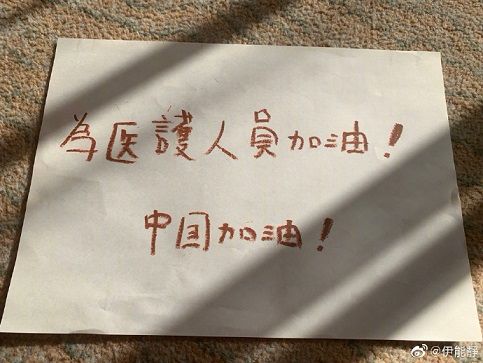 為医護人員加油！
中国加油！
@伊能静